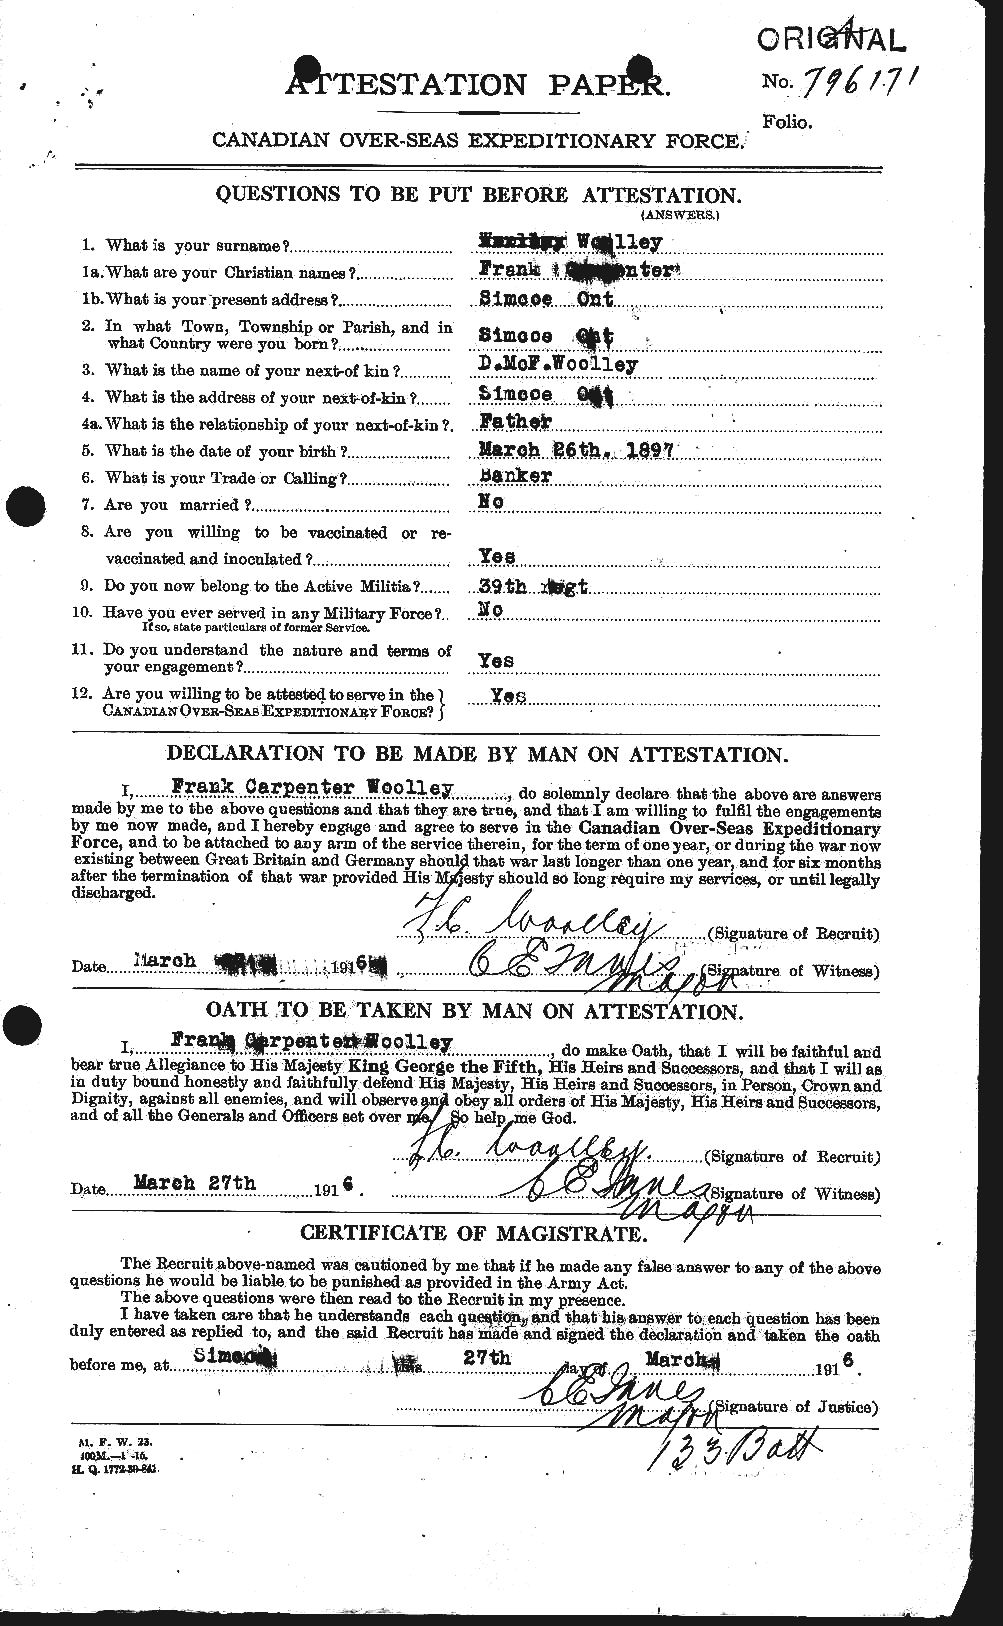 ORIGINAL
ATTESTATION PAPER.
No. 796171
Folio.
CANADIAN OVER-SEAS EXPEDITIONARY FORCE.
QUESTIONS TO BE PUT BEFORE ATTESTATION.
(ANSWERS.)
1. What is your surname?........ Woolley
1a. What are your Christian names?........ Frank Carpenter
1b. What is your present address?........ Simcoe Ont
2. In what Town, Township or Parish, and in
what Country were you born?........ Simcoe Ont
3. What is the name of your next-of kin?........ D.McF.Woolley
4. What is the address of your next-of-kin?........ Simcoe Ont
4a. What is the relationship of your next-of-kin?. Father
5. What is the date of your birth?........ March 26th. 1897
6. What is your Trade or Calling?........ Banker
7. Are you married?........ No
8. Are you willing to be vaccinated or re-
vaccinated and inoculated?........ Yes
9. Do you now belong to the Active Militia?........ 39th Regt
10. Have you ever served in any Military Force?.. No
If so, state particulars of former Service.
11. Do you understand the nature and terms of
your engagement?........ Yes
12. Are you willing to be attested to serve in the }
CANADIAN OVER-SEAS EXPEDITIONARY FORCE? } Yes
DECLARATION TO BE MADE BY MAN ON ATTESTATION.
I, Frank Carpenter Woolley, do solemnly declare that the above are answers
made by me to the above questions and that they are true, and that I am willing to fulfil the engagements
by me now made, and I hereby engage and agree to serve in the Canadian Over-Seas Expeditionary
Force, and to be attached to any arm of the service therein, for the term of one year, or during the war now
existing between Great Britain and Germany should that war last longer than one year, and for six months
after the termination of that war provided His Majesty should so long require my services, or until legally
discharged.
F.C. Woolley (Signature of Recruit)
Date March 1916 C E Innes (Signature of Witness)
Major
OATH TO BE TAKEN BY MAN ON ATTESTATION.
I, Frank Carpenter Woolley, do make Oath, that I will be faithful and
bear true Allegiance to His Majesty King George the Fifth, His Heirs and Successors, and that I will as
in duty bound honestly and faithfully defend His Majesty, His Heirs and Successors, in Person, Crown and
Dignity, against all enemies, and will observe and obey all orders of His Majesty, His Heirs and Successors,
and of all the Generals and Officers set over me. So help me God.
F.C. Woolley. (Signature of Recruit)
Date March 27th 1916. C E Innes (Signature of Witness)
Major
CERTIFICATE OF MAGISTRATE.
The Recruit above-named was cautioned by me that if he made any false answer to any of the above
questions he would be liable to be punished as provided in the Army Act.
The above questions were then read to the Recruit in my presence.
I have taken care that he understands each question, and that his answer to each question has been
duly entered as replied to, and the said Recruit has made and signed the declaration and taken the oath
before me, at Simcoe this 27th day of March 1916.
C E Innes
Major (Signature of Justice)
133 Batt
M. F. W. 23.
H. Q. 1772-39-841.